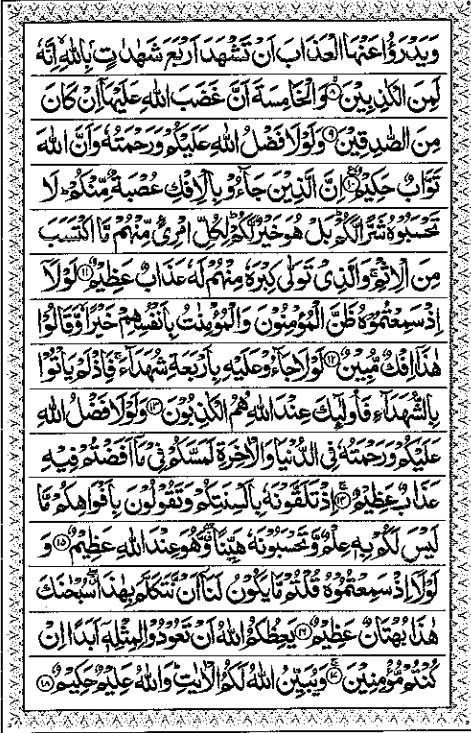 وَيَدْرَؤُا عَنْهَا الْعَذَابَ اَنْ تَشْهَدَ اَرْبَعَ شَهٰدٰتٍۭ بِاللّٰهِ اِنَّهٗ
لَمِنَ الْكٰذِبِيْنَ ۙ﴿۸﴾ وَالْخَامِسَةَ اَنَّ غَضَبَ اللّٰهِ عَلَيْهَاۤ اِنْ كَانَ
مِنَ الصّٰدِقِيْنَ ﴿۹﴾ وَلَوْلَا فَضْلُ اللّٰهِ عَلَيْكُمْ وَرَحْمَتُهٗ وَاَنَّ اللّٰهَ
تَوَّابٌ حَكِيْمٌ ﴿۱۰﴾ اِنَّ الَّذِيْنَ جَآءُوْ بِالْاِفْكِ عُصْبَةٌ مِّنْكُمْ ؕ لَا
تَحْسَبُوْهُ شَرًّا لَّكُمْ ؕ بَلْ هُوَ خَيْرٌ لَّكُمْ ؕ لِكُلِّ امْرِیًٴ مِّنْهُمْ مَّا اكْتَسَبَ
مِنَ الْاِثْمِ ۚ وَالَّذِيْ تَوَلّٰى كِبْرَهٗ مِنْهُمْ لَهٗ عَذَابٌ عَظِيْمٌ ﴿۱۱﴾ لَوْلَاۤ
اِذْ سَمِعْتُمُوْهُ ظَنَّ الْمُؤْمِنُوْنَ وَالْمُؤْمِنٰتُ بِاَنْفُسِهِمْ خَيْرًا ۙ وَّقَالُوْا
هٰذَاۤ اِفْكٌ مُّبِيْنٌ ﴿۱۲﴾ لَوْلَا جَآءُوْ عَلَيْهِ بِاَرْبَعَةِ شُهَدَآءَ ۚ فَاِذْ لَمْ يَاْتُوْا
بِالشُّهَدَآءِ فَاُولٰٓئِكَ عِنْدَ اللّٰهِ هُمُ الْكٰذِبُوْنَ ﴿۱۳﴾ وَلَوْلَا فَضْلُ اللّٰهِ
عَلَيْكُمْ وَرَحْمَتُهٗ فِي الدُّنْيَا وَالْاٰخِرَةِ لَمَسَّكُمْ فِيْ مَاۤ اَفَضْتُمْ فِيْهِ
عَذَابٌ عَظِيْمٌ ﴿۱۴﴾ اِذْ تَلَقَّوْنَهٗ بِاَلْسِنَتِكُمْ وَتَقُوْلُوْنَ بِاَفْوَاهِكُمْ مَّا
لَيْسَ لَكُمْ بِهٖ عِلْمٌ وَّتَحْسَبُوْنَهٗ هَيِّنًا ۖ وَّهُوَ عِنْدَ اللّٰهِ عَظِيْمٌ ﴿۱۵﴾ وَ
لَوْلَاۤ اِذْ سَمِعْتُمُوْهُ قُلْتُمْ مَّا يَكُوْنُ لَنَاۤ اَنْ نَّتَكَلَّمَ بِهٰذَا ۖ سُبْحٰنَكَ
هٰذَا بُهْتَانٌ عَظِيْمٌ ﴿۱۶﴾ يَعِظُكُمُ اللّٰهُ اَنْ تَعُوْدُوْا لِمِثْلِهٖۤ اَبَدًا اِنْ
كُنْتُمْ مُّؤْمِنِيْنَ ﴿۱۷﴾ وَيُبَيِّنُ اللّٰهُ لَكُمُ الْاٰيٰتِ ؕ وَاللّٰهُ عَلِيْمٌ حَكِيْمٌ ﴿۱۸﴾